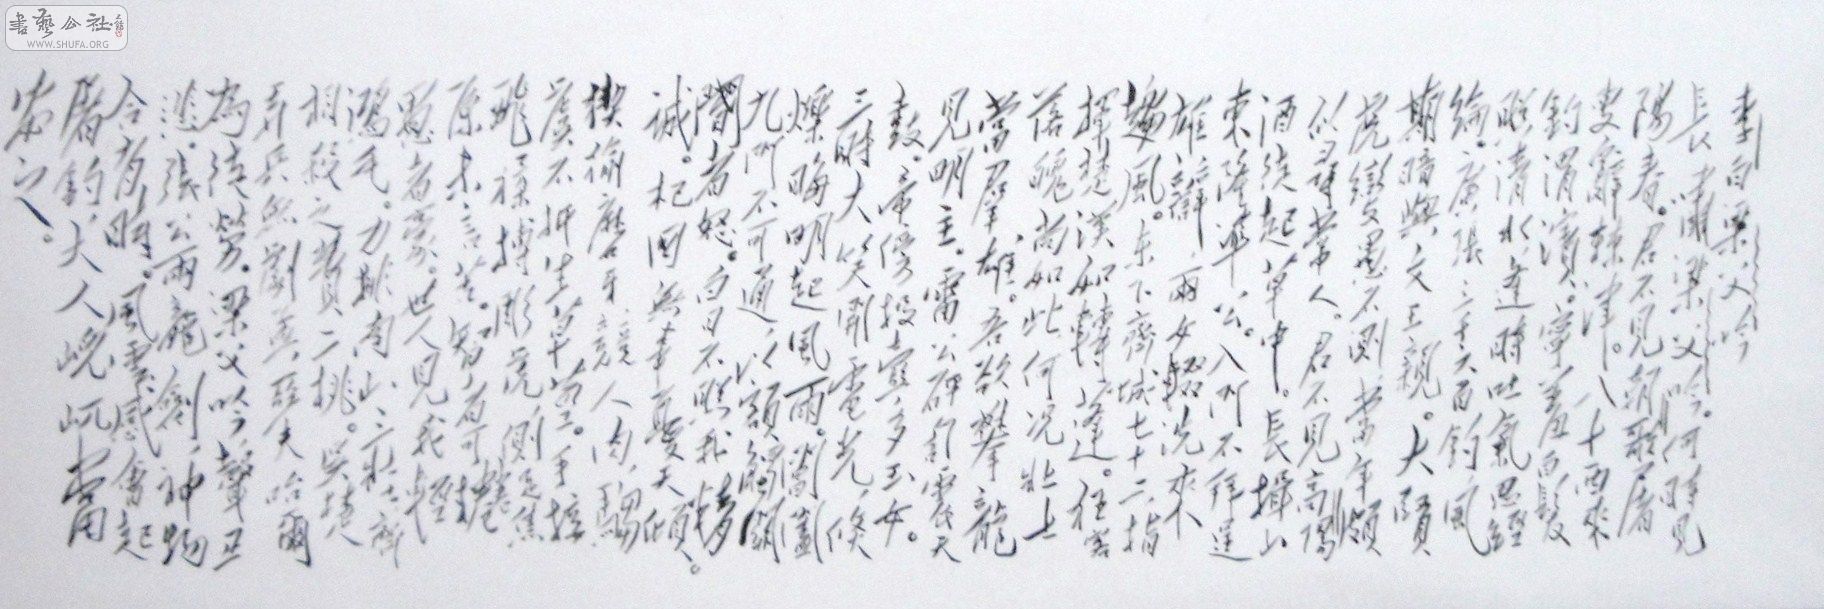 書藝公社
WWW.SHUFA.ORG
李白梁父吟
長嘯梁父吟。何時見
陽春。君不見朝歌屠
叟辭棘津。八十西來
釣渭濱。寧羞白髮
照清水逢時吐氣思經
綸。廣張三千六百釣風
期暗與文王親。大賢
虎變愚不測當年頗
似尋常人。君不見高陽
酒徒起草中。長揖山
東隆準公。入門不拜逞
雄辯兩女輟洗來
趨風。東下齊城七十二指
揮楚漢如轉蓬。狂客
落魄尚如此何況壯士
當群雄。吾欲攀龍
見明主。雷公砰訇震天
鼓。帝傍投壺多玉女。
三時大笑開電光,倏
爍晦明起風雨。閶闔
九門不可通,以額觸關
閽者怒。白日不照我精
誠。杞國無事憂天傾。
猰貐磨牙競人肉,騶
虞不折生草莖。手接
飛猱搏彫虎,側足焦
原未言苦。智者可捲
愚者豪。世人見我輕
鴻毛。力排南山三壯士齊
相殺之費二桃。吳楚
弄兵無劇孟亞夫咍爾
為徒勞。梁父吟,聲正
悲。張公兩龍劍,神物
合有時。風雲感會起
屠釣,大人屼當
安之。